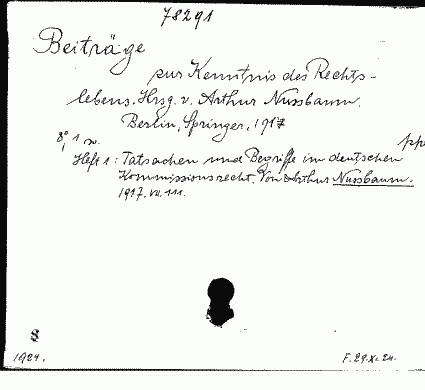 78291
Beiträge
zur Kenntnis des Rechts-
lebens. Hrsg. v. Arthur Nussbaum.
Berlin, Springer, 1917
8°, 1 w.
pp
Heft 1: Tatsachen und Begriffe im deutschen
Kommissionsrecht. Von Arthur Nussbaum.
1917. VII. 111.
8
1924.
F. 29.XI.24.